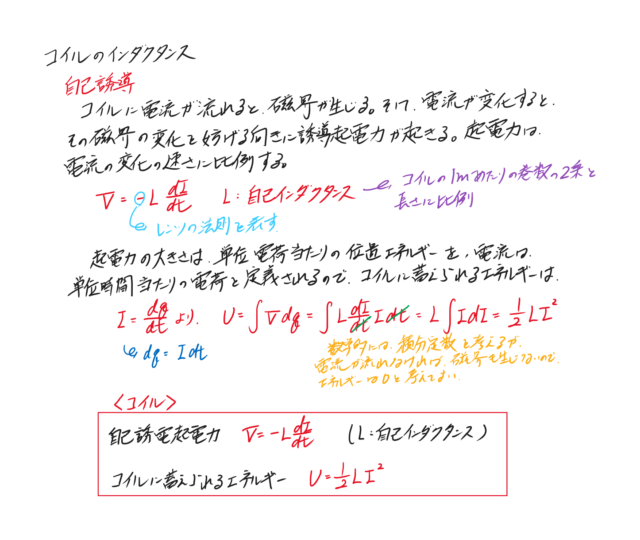 コイルのインダクタンス
自己誘導
コイルに電流が流れると、磁界が生じる。そして、電流が変化すると、
その磁界の変化を妨げる向きに誘導起電力が起きる。起電力は、
電流の変化の速さに比例する。
V = -L dI/dt L:自己インダクタンス
コイルの1mあたりの巻数の2乗と
長さに比例
レンツの法則を表す
起電力の大きさは、単位電荷当たりの位置エネルギーを、電流は、
単位時間当たりの電荷と定義されるので、コイルに蓄えられるエネルギーは、
I = dq/dt より、 U = ∫V dq = ∫L dI/dt I dt = L∫I dI = 1/2 LI²
dq = I dt
数学的には、積分定数を考えるが、
電流が流れなければ、磁界も生じないので、
エネルギーは0と考えてよい
<コイル>
自己誘電起電力 V = -L dI/dt (L:自己インダクタンス)
コイルに蓄えられるエネルギー U = 1/2 LI²